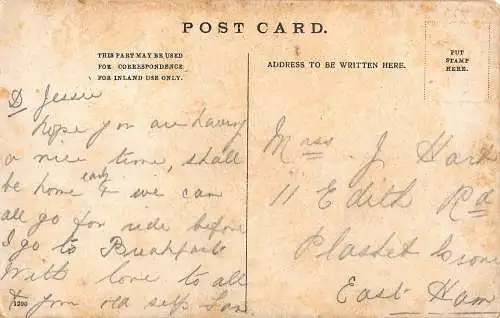 POST CARD.
THIS PART MAY BE USED
FOR CORRESPONDENCE
FOR INLAND USE ONLY.
ADDRESS TO BE WRITTEN HERE.
PUT
STAMP
HERE.
D Jessie
hope you are having
a nice time, shall
be home early & we can
all go for ride before
I go to Breakfast
With love to all
& your old self
1200
J
11 Edith Rd
Plashet Grove
East Ham